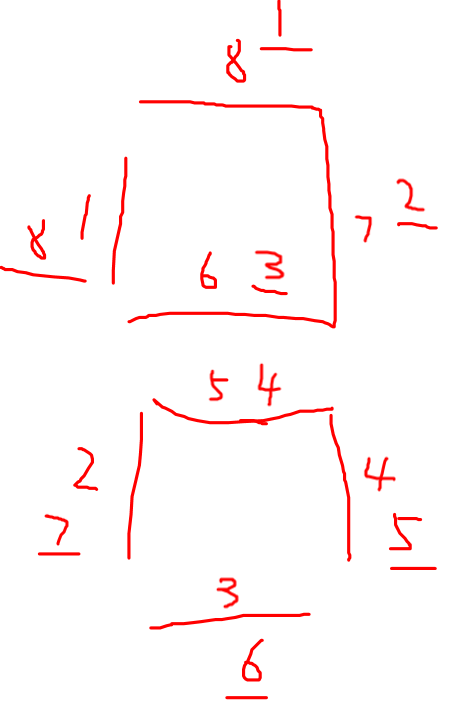 8 1
8 1
7 2
6 3
5 4
2
7
4
5
3
6